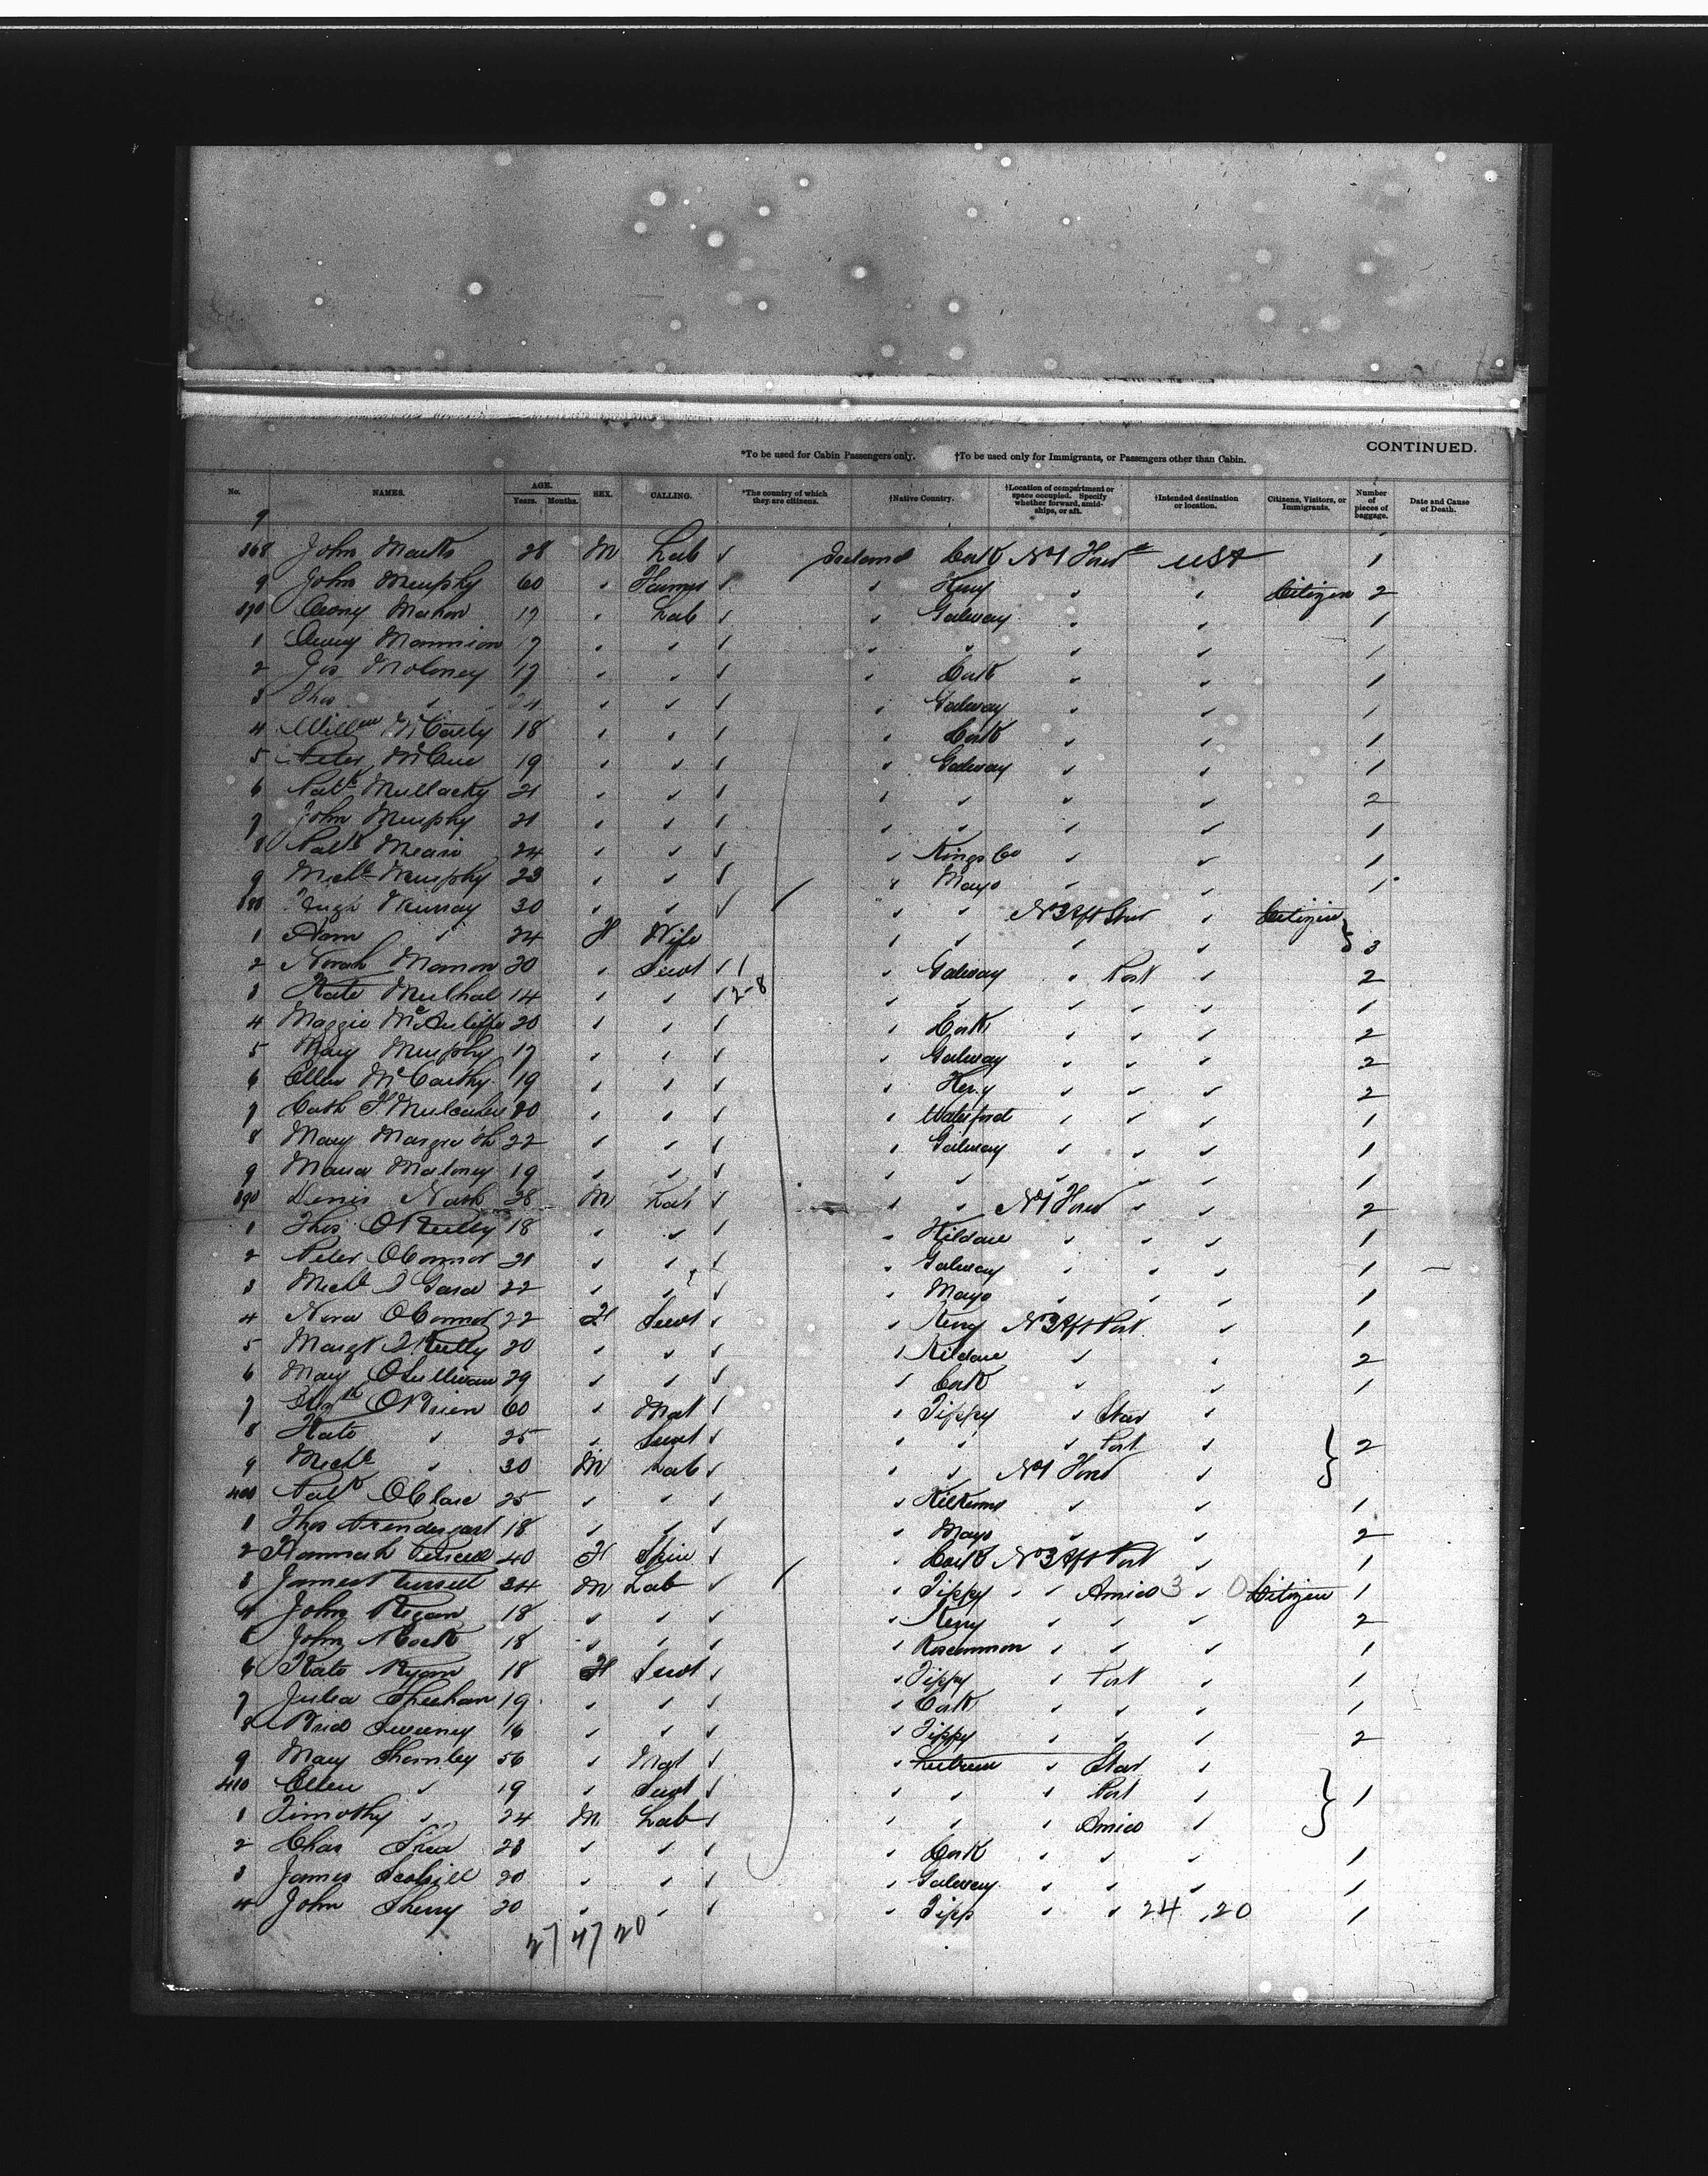 CONTINUED.
*To be used for Cabin Passengers only. †To be used only for Immigrants, or Passengers other than Cabin.
No. NAMES. AGE. Years. Months. SEX. CALLING. *The country of which they are citizens. †Native Country. †Location of compartment or space occupied. Specify whether forward, amidships, or aft. †Intended destination or location. Citizens, Visitors, or Immigrants. Number of pieces of baggage. Date and Cause of Death.
9
368 John 28 M Lab ✓ Ireland Cork No1 Forwd USA 1
9 John Murphy 60 Farmer ✓ Kerry Citizen 2
370 Mahon 17 Lab ✓ Galway 1
1 Mannion 1
2 Jos Moloney 17 Cork 1
3 Thos Galway 1
4 Willm McCarty 18 Cork 1
5 Peter McCue 19 Galway 1
6 Patk Mullarky 21 2
7 John Murphy 21 1
8 Patk 24 Kings Co 1
9 Michl Murphy 23 Mayo 1
380 Hugh Murray 30 No3 Aft Star Citizen
1 24 F Wife 3
2 Norah Mannon 20 Servt ✓ 1 Galway Port 2
3 Kate Mulhal 14 ✓ 2-8 1
4 Maggie McAuliffe 20 Cork 2
5 Mary Murphy 17 Galway 2
6 Ellen McCarthy 19 Kerry 2
7 Cath 20 Waterford 1
8 Mary 22 Galway 1
9 Maria Maloney 19 1
390 Denis Nash 28 M Lab ✓ No1 Forwd 2
1 Thos OReilly 18 Kildare 1
2 Peter OConnor 21 Galway 1
3 Michl 22 Mayo 1
4 Nora OConnor 22 F Servt Kerry No3 Aft Port 1
5 Margt 20 Kildare 2
6 Mary OSullivan 29 Cork 1
7 OBrien 60 Mat Tippy Star
8 Kate 25 Servt Port 2
9 Michl 30 M Lab No1 Forwd
400 Patk OClare 25 1
1 Thos Prendergast 18 Mayo 2
2 Hannah Purcell 40 F Spin Cork No3 Aft Port 1
3 James 34 M Lab Tippy Amids 3 0 Citizen 1
4 John Regan 18 Kerry 2
5 John 18 Roscommon 1
6 Kate Ryan 18 F Servt Tippy Port 1
7 Julia Sheehan 19 Cork 1
8 Brid Sweeney 16 Tippy 2
9 Mary 56 Mat Leitrim Star
410 Ellen 19 Servt Port 1
1 Timothy 24 M Lab Amids
2 Chas Shea 23 Cork 1
3 James 20 Galway 1
4 John Sherry 20 Tipp 24 20 1
27 47 20